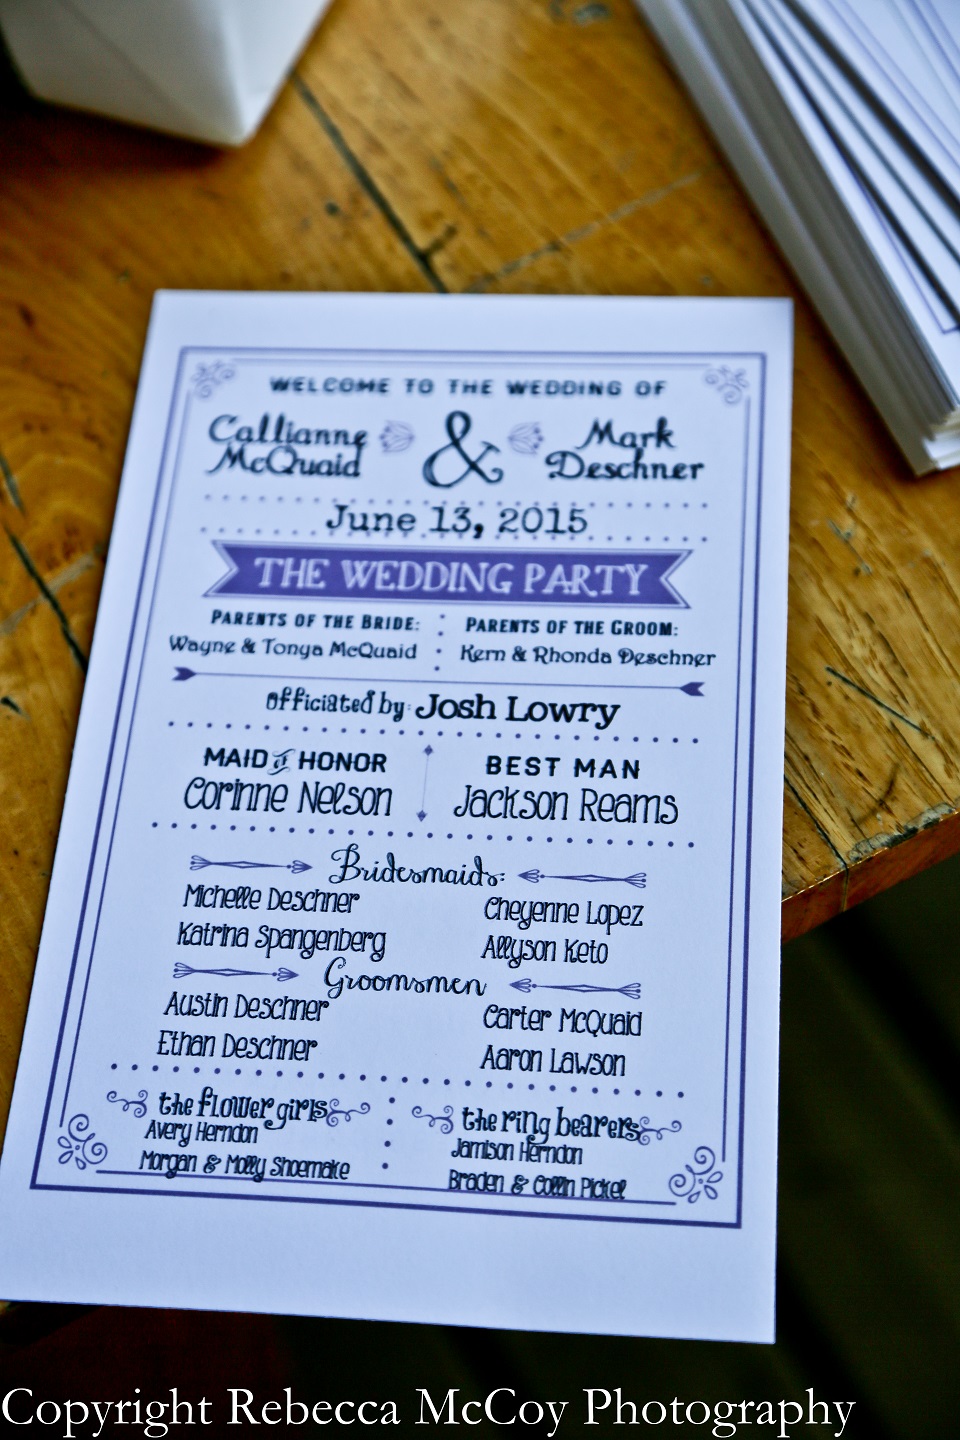 WELCOME TO THE WEDDING OF
Callianne McQuaid & Mark Deschner
June 13, 2015
THE WEDDING PARTY
PARENTS OF THE BRIDE: PARENTS OF THE GROOM:
Wayne & Tonya McQuaid Kern & Rhonda Deschner
officiated by: Josh Lowry
MAID of HONOR BEST MAN
Corinne Nelson Jackson Reams
Bridesmaids:
Michelle Deschner Cheyenne Lopez
Katrina Spangenberg Allyson Keto
Groomsmen
Austin Deschner Carter McQuaid
Ethan Deschner Aaron Lawson
the flower girls the ring bearers
Avery Herndon Jamison Herndon
Morgan & Molly Shoemake Braden & Collin Pickel
Copyright Rebecca McCoy Photography